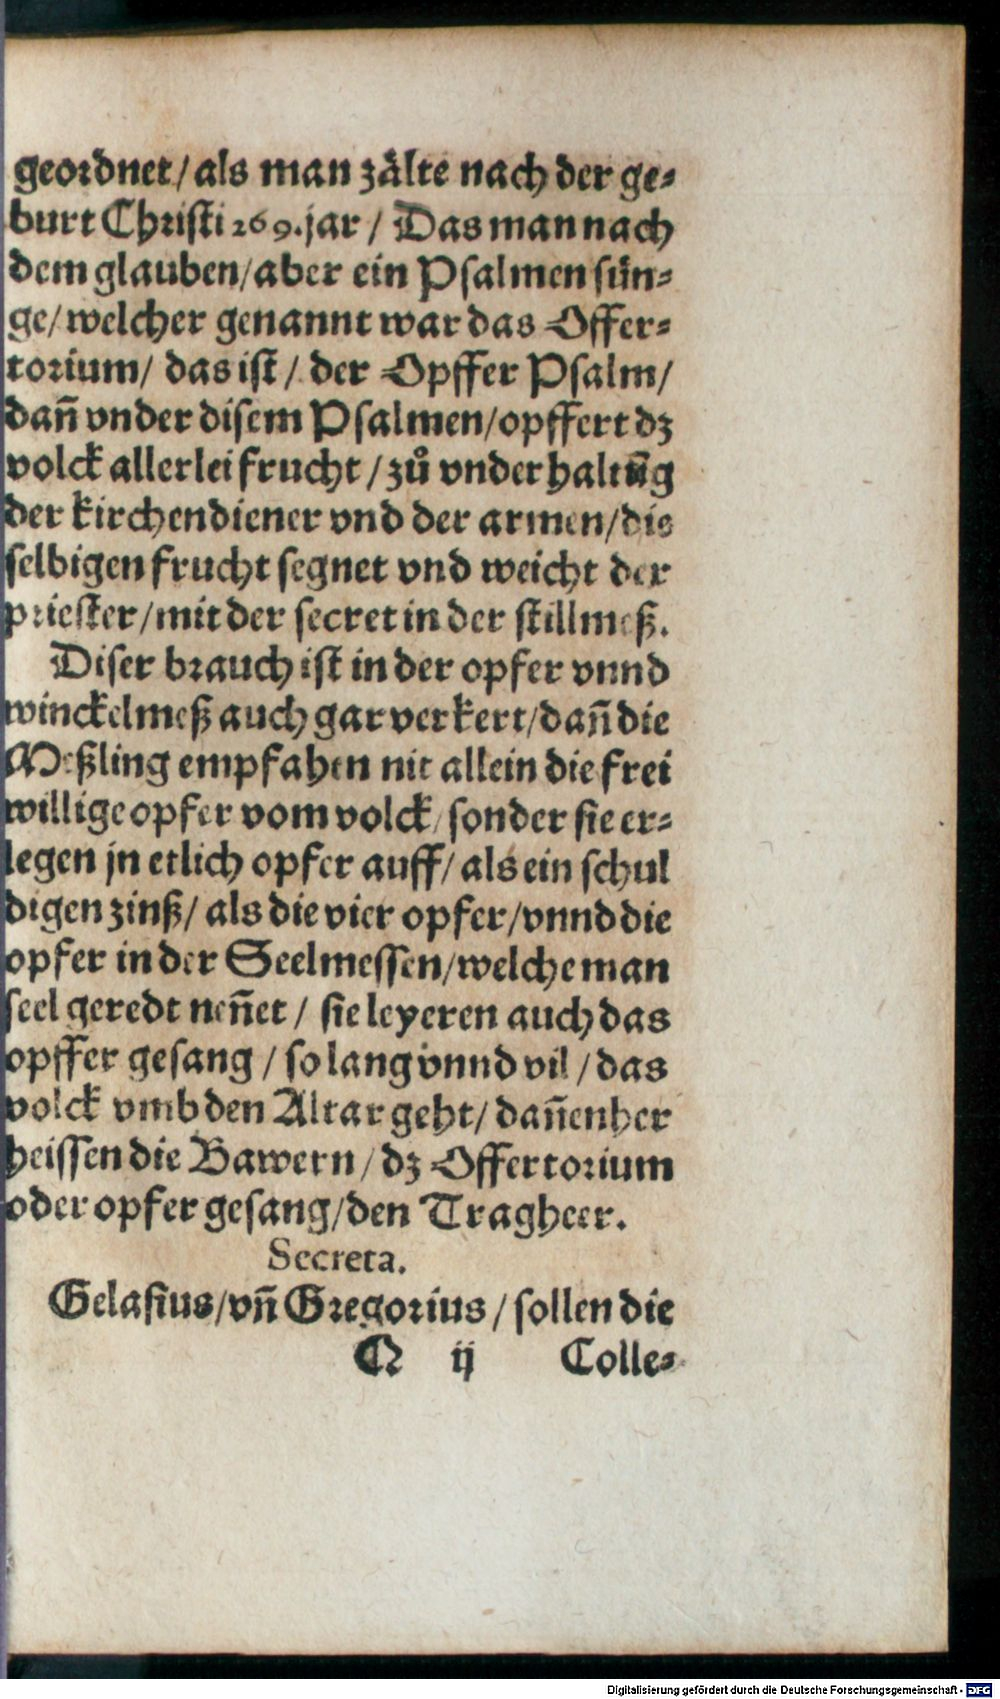 geordnet/ als man zälte nach der ge⸗
burt Christi 269. jar / Das man nach
dem glauben/ aber ein Psalmen sün⸗
ge/ welcher genannt war das Offer⸗
torium/ das ist / der Opffer Psalm/
dañ vnder disem Psalmen/ opffert dz
volck allerlei frucht / zů vnderhaltũg
der kirchendiener vnd der armen/ die
selbigen frucht segnet vnd weicht der
priester/ mit der secret in der stillmeß.
Diser brauch ist in der opfer vnnd
winckelmeß auch gar verkert/ dañ die
Meßling empfahen nit allein die frei
willige opfer vom volck/ sonder sie er⸗
legen jn etlich opfer auff/ als ein schul
digen zinß/ als die vier opfer/ vnnd die
opfer in der Seelmessen/ welche man
seel geredt neñet / sie leyeren auch das
opffer gesang / so lang vnnd vil / das
volck vmb den Altar geht/ dañenher
heissen die Bawern / dz Offertorium
oder opfer gesang/ den Tragheer.
Secreta.
Gelasius/ vñ Gregorius / sollen die
Q ij Colle⸗
Digitalisierung gefördert durch die Deutsche Forschungsgemeinschaft - DFG